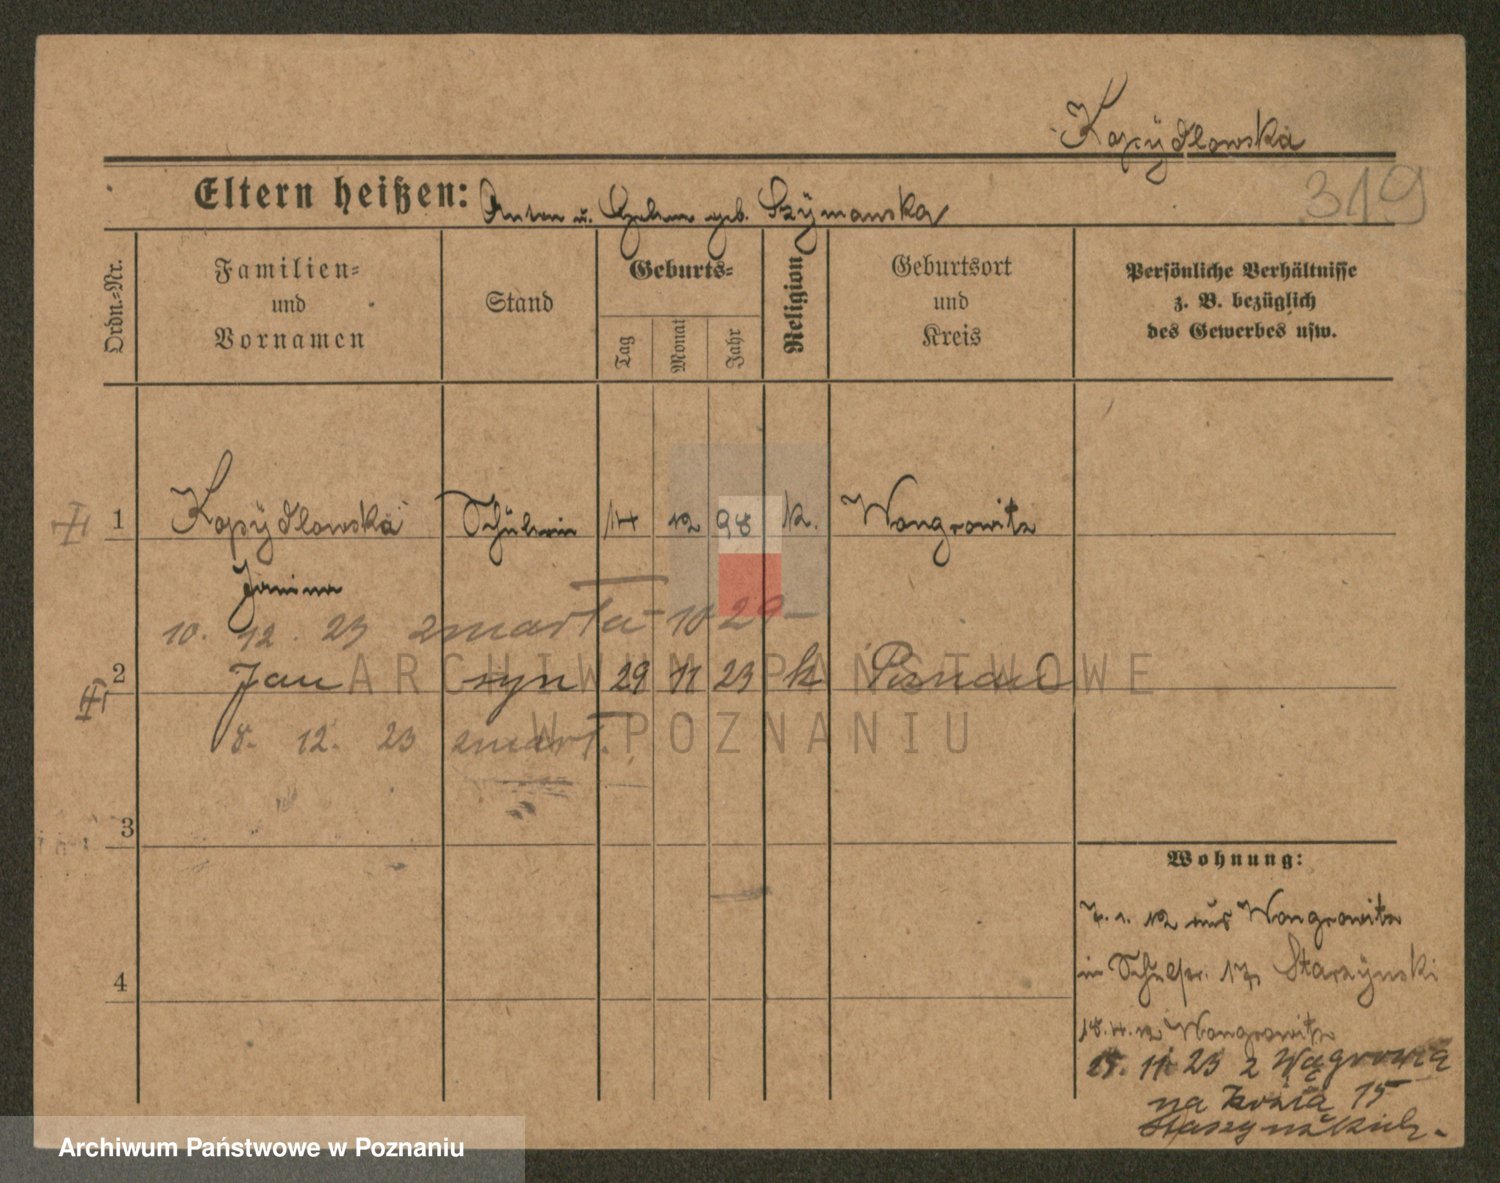 Kopÿdlowska
Eltern heißen: Anton u. Helene geb. Szÿmanska
319
Ordn.-Nr.
Familien-
und
Vornamen
Stand
Geburts-
Tag
Monat
Jahr
Religion
Geburtsort
und
Kreis
Persönliche Verhältnisse
z. B. bezüglich
des Gewerbes usw.
1 Kopÿdlowska Schülerin 14 12 98 k. Wongrowitz
Janina
10. 12. 23 zmarła
2 Jan syn 29 11 23 k Poznań
8. 12. 23 zmarł.
3
4
Wohnung:
7. 1. 12 aus Wongrowitz
in Schulstr. 17, Starzÿnski
18. 4. 12 Wongrowitz
11 23 z Wągrowca
na 15
ARCHIWUM PAŃSTWOWE
W POZNANIU
Archiwum Państwowe w Poznaniu